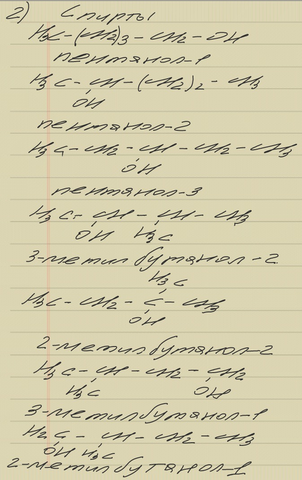 2) Спирты
H₃C-(CH₂)₃-CH₂-OH
пентанол-1
H₃C-CH-(CH₂)₂-CH₃
OH
пентанол-2
H₃C-CH₂-CH-CH₂-CH₃
OH
пентанол-3
H₃C-CH-CH-CH₃
OH H₃C
3-метилбутанол-2
H₃C
H₃C-CH₂-C-CH₃
OH
2-метилбутанол-2
H₃C-CH-CH₂-CH₂
H₃C OH
3-метилбутанол-1
H₂C-CH-CH₂-CH₃
OH H₃C
2-метилбутанол-1